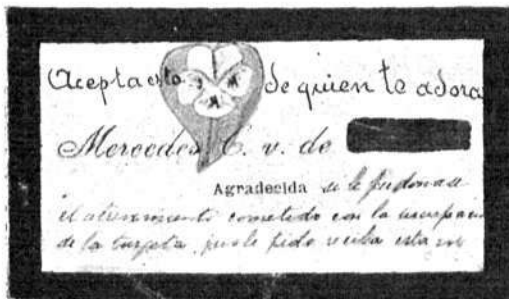 Acepta esto de quien te adora
Mercedes C. v. de
Agradecida si le perdonase
el atrevimiento cometido con la usurpación
de la tarjeta, pues le pido reciba esta